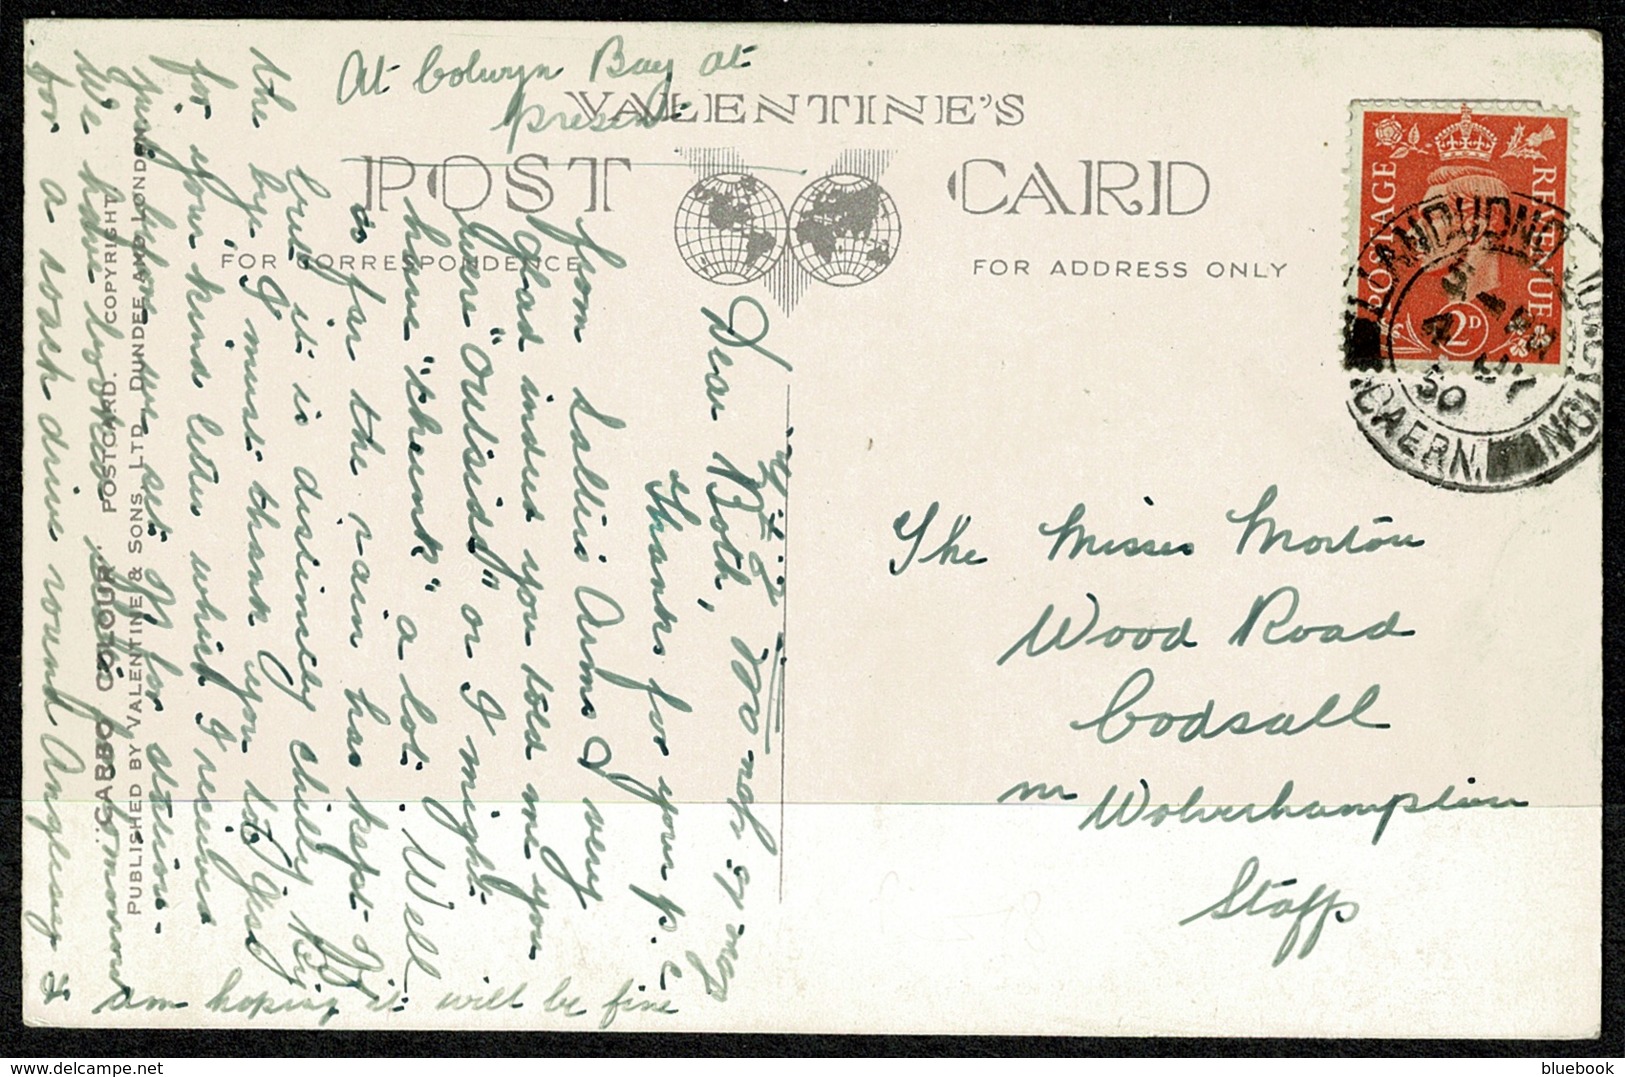 At Colwyn Bay at
present
VALENTINE'S
POST CARD
FOR CORRESPONDENCE
FOR ADDRESS ONLY
POSTAGE
REVENUE
2D
LLANDUDNO
CAERN.
50
The Misses Morton
Wood Road
Codsall
nr Wolverhampton
Staffs
Dear Both,
Thanks for your p.c
from Arms I very
glad indeed you told me you
were "outside" or I might
have "thunk" a lot. Well
so far the rain has kept off
but it is distinctly chilly. By
the bye I must thank you &
for your kind letter which I received
just before we set off for station.
We have booked for
for a coach drive round Anglesey &
am hoping it will be fine
"CARBO COLOUR" POSTCARD. COPYRIGHT
PUBLISHED BY VALENTINE & SONS, LTD. DUNDEE AND LONDON
bluebook